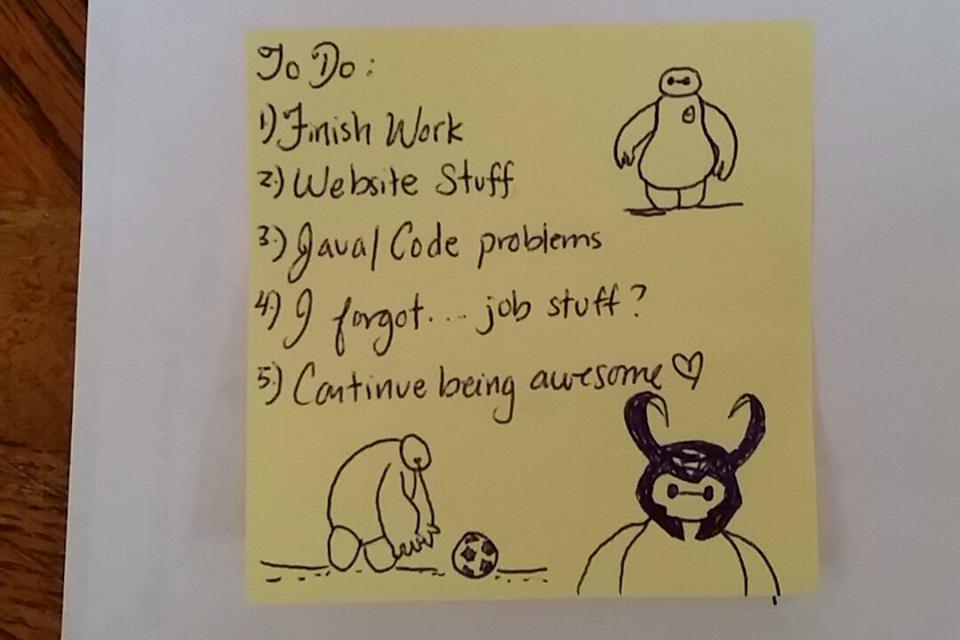 To Do:
1) Finish Work
2.) Website Stuff
3.) Java/Code problems
4.) I forgot... job stuff?
5.) Continue being awesome ♡